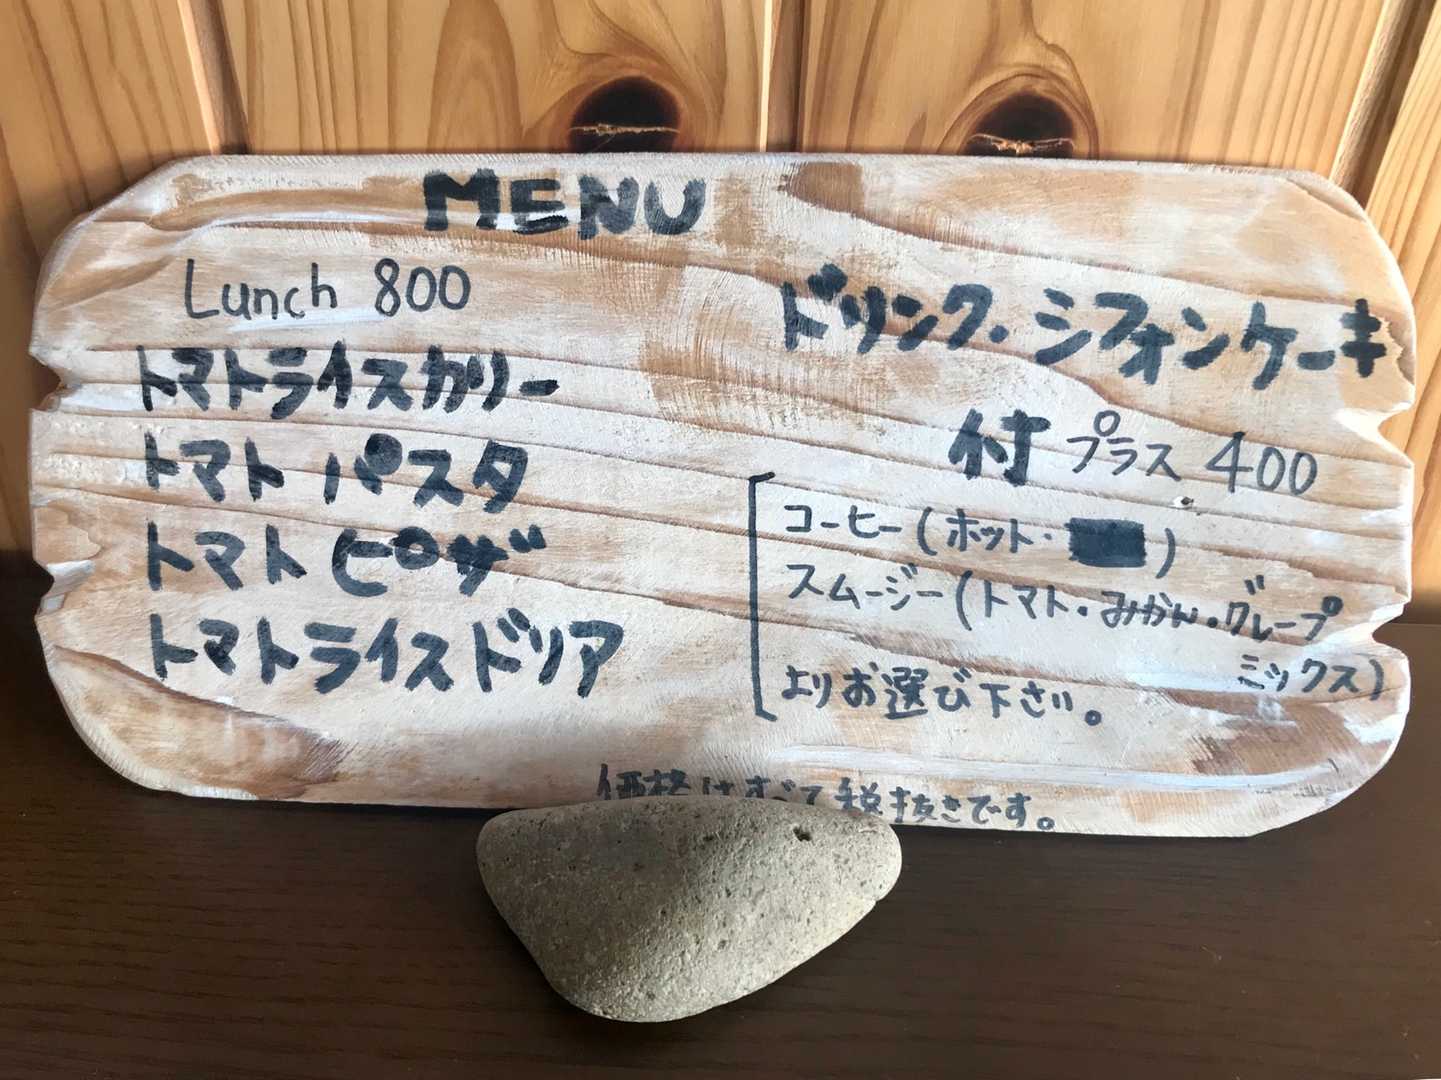 MENU
Lunch 800
トマトライスカリー
トマトパスタ
トマトピザ
トマトライスドリア
ドリンク・シフォンケーキ
付 プラス 400
コーヒー(ホット・ )
スムージー(トマト・みかん・グレープ
ミックス)
よりお選び下さい。
価格はすべて税抜きです。